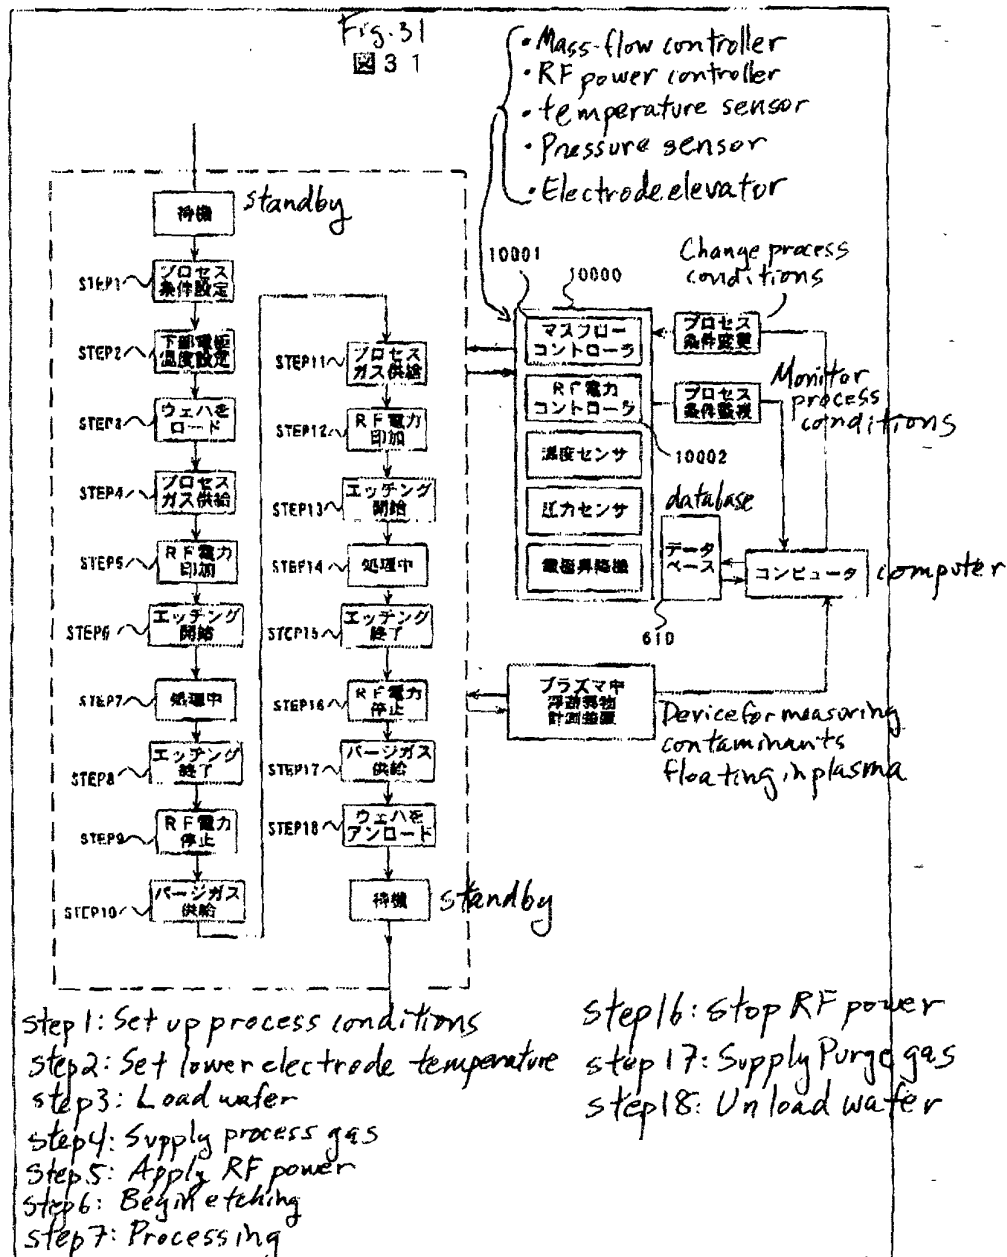 Fig. 31
図31
• Mass-flow controller
• RF power controller
• temperature sensor
• Pressure sensor
• Electrode elevator
待機
standby
STEP1
プロセス
条件設定
STEP2
下部電極
温度設定
STEP3
ウェハを
ロード
STEP4
プロセス
ガス供給
STEP5
RF電力
印加
STEP6
エッチング
開始
STEP7
処理中
STEP8
エッチング
終了
STEP9
RF電力
停止
STEP10
パージガス
供給
STEP11
プロセス
ガス供給
STEP12
RF電力
印加
STEP13
エッチング
開始
STEP14
処理中
STEP15
エッチング
終了
STEP16
RF電力
停止
STEP17
パージガス
供給
STEP18
ウェハを
アンロード
待機
standby
10001
10000
マスフロー
コントローラ
RF電力
コントローラ
10002
温度センサ
圧力センサ
電極昇降機
Change process
conditions
プロセス
条件変更
Monitor
process
conditions
プロセス
条件監視
database
データ
ベース
610
コンピュータ
computer
プラズマ中
浮遊異物
計測装置
Device for measuring
contaminants
floating in plasma
step 1: Set up process conditions
step2: Set lower electrode temperature
step3: Load wafer
step4: Supply process gas
step5: Apply RF power
step6: Begin etching
step7: Processing
step16: Stop RF power
step 17: Supply Purge gas
step18: Unload wafer